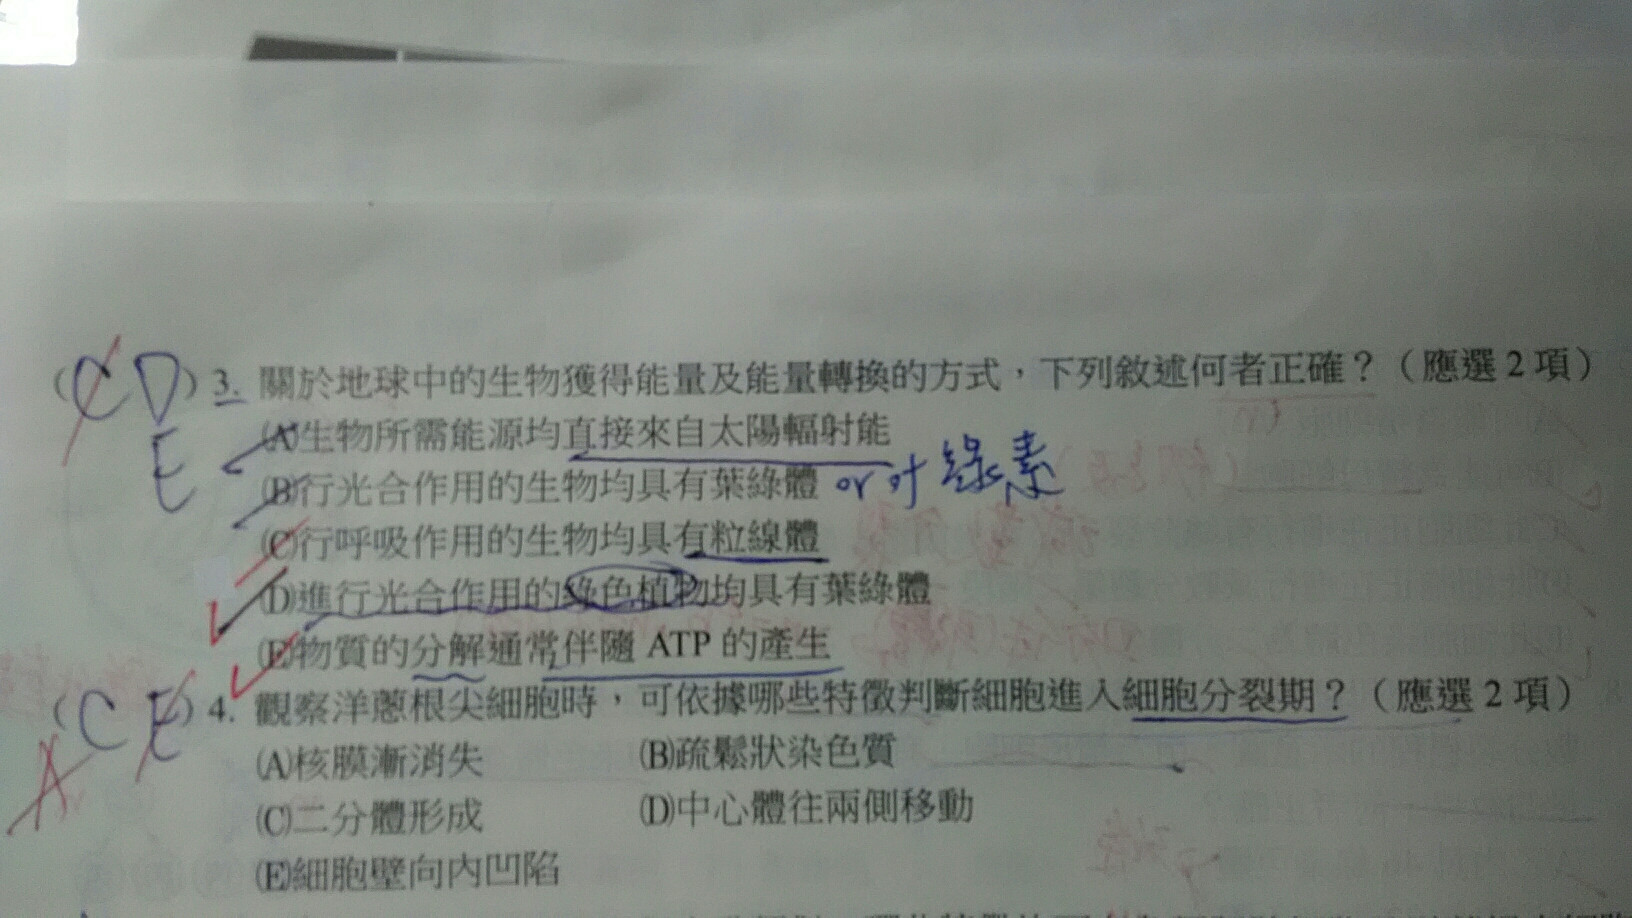 (CD) 3. 關於地球中的生物獲得能量及能量轉換的方式，下列敘述何者正確？（應選 2 項）
E
(A)生物所需能源均直接來自太陽輻射能
(B)行光合作用的生物均具有葉綠體 or 叶綠素
(C)行呼吸作用的生物均具有粒線體
(D)進行光合作用的綠色植物均具有葉綠體
(E)物質的分解通常伴隨 ATP 的產生
(CE) 4. 觀察洋蔥根尖細胞時，可依據哪些特徵判斷細胞進入細胞分裂期？（應選 2 項）
A
(A)核膜漸消失 (B)疏鬆狀染色質
(C)二分體形成 (D)中心體往兩側移動
(E)細胞壁向內凹陷